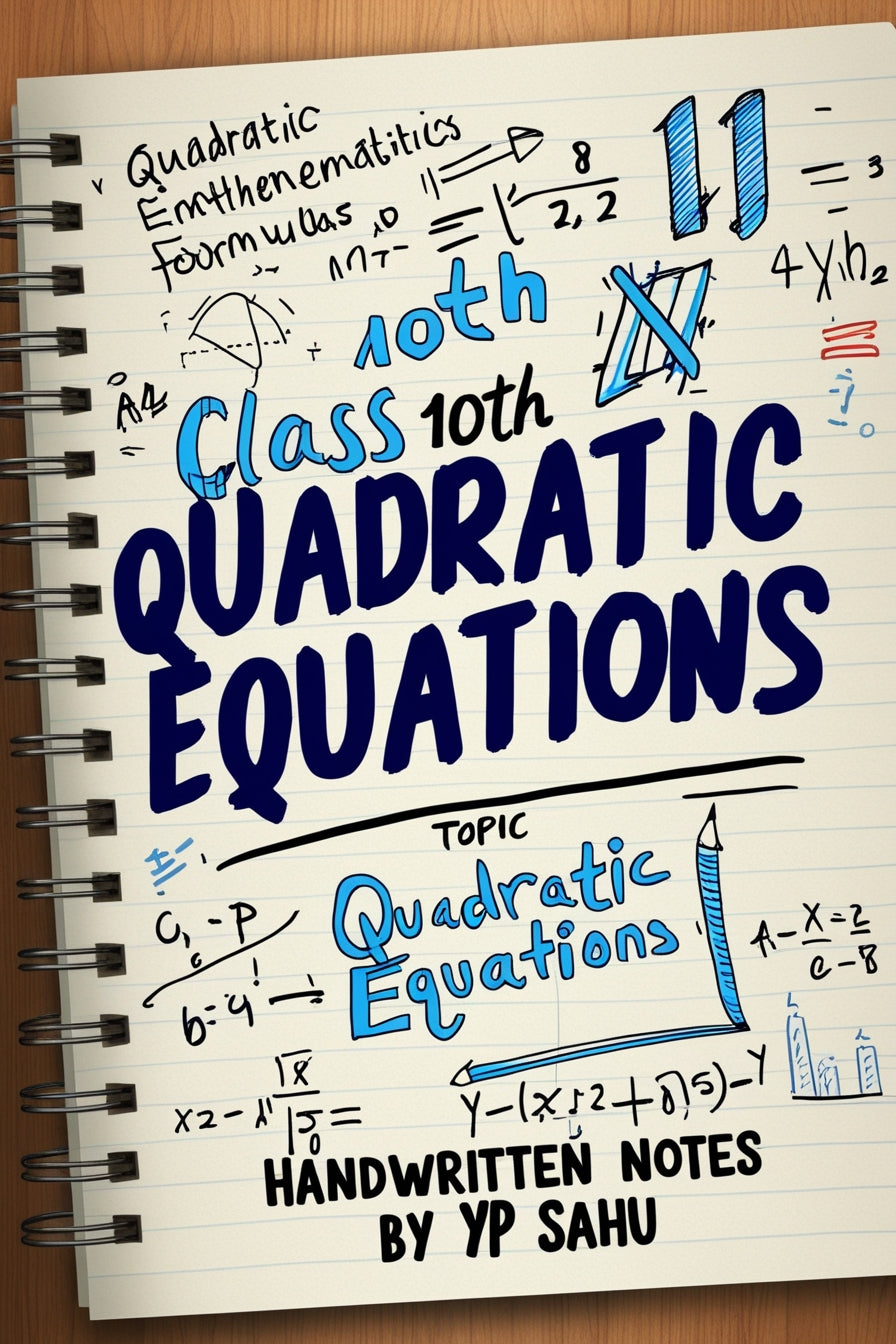 Quadratic
Emthenematitics
Foormulas
= 8
2, 2
11
= 3
10th
Class 10th
QUADRATIC
EQUATIONS
TOPIC
Quadratic
Equations
A - X = 2
c - 8
HANDWRITTEN NOTES
BY YP SAHU